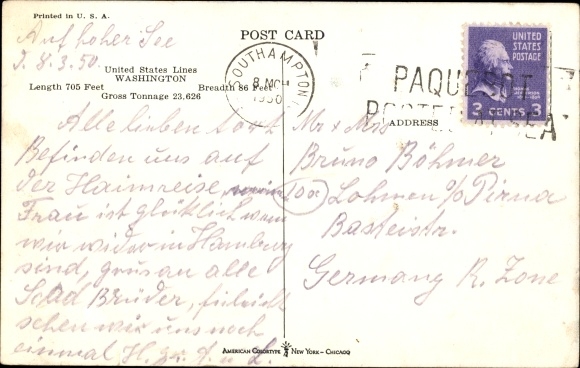 Printed in U. S. A.
POST CARD
Auf hoher See
8.3.50
United States Lines
WASHINGTON
Length 705 Feet Breadth 86 Feet
Gross Tonnage 23,626
SOUTHAMPTON
8 MCH
1950
PAQUEBOT
POSTED AT SEA
UNITED
STATES
POSTAGE
3 CENTS 3
ADDRESS
Alle lieben dort
Befinden uns auf
der Haimreise, meine
Frau ist glücklich wenn
wir wider in Hamburg
sind, grüsan alle
Scad Brüder, fileicht
sehen wir uns noch
einmal H. gr.
Mr & Mrs
Bruno Böhmer
10a Lohmen b/Pirna
Basteistr.
Germany R. Zone
AMERICAN COLORTYPE NEW YORK - CHICAGO